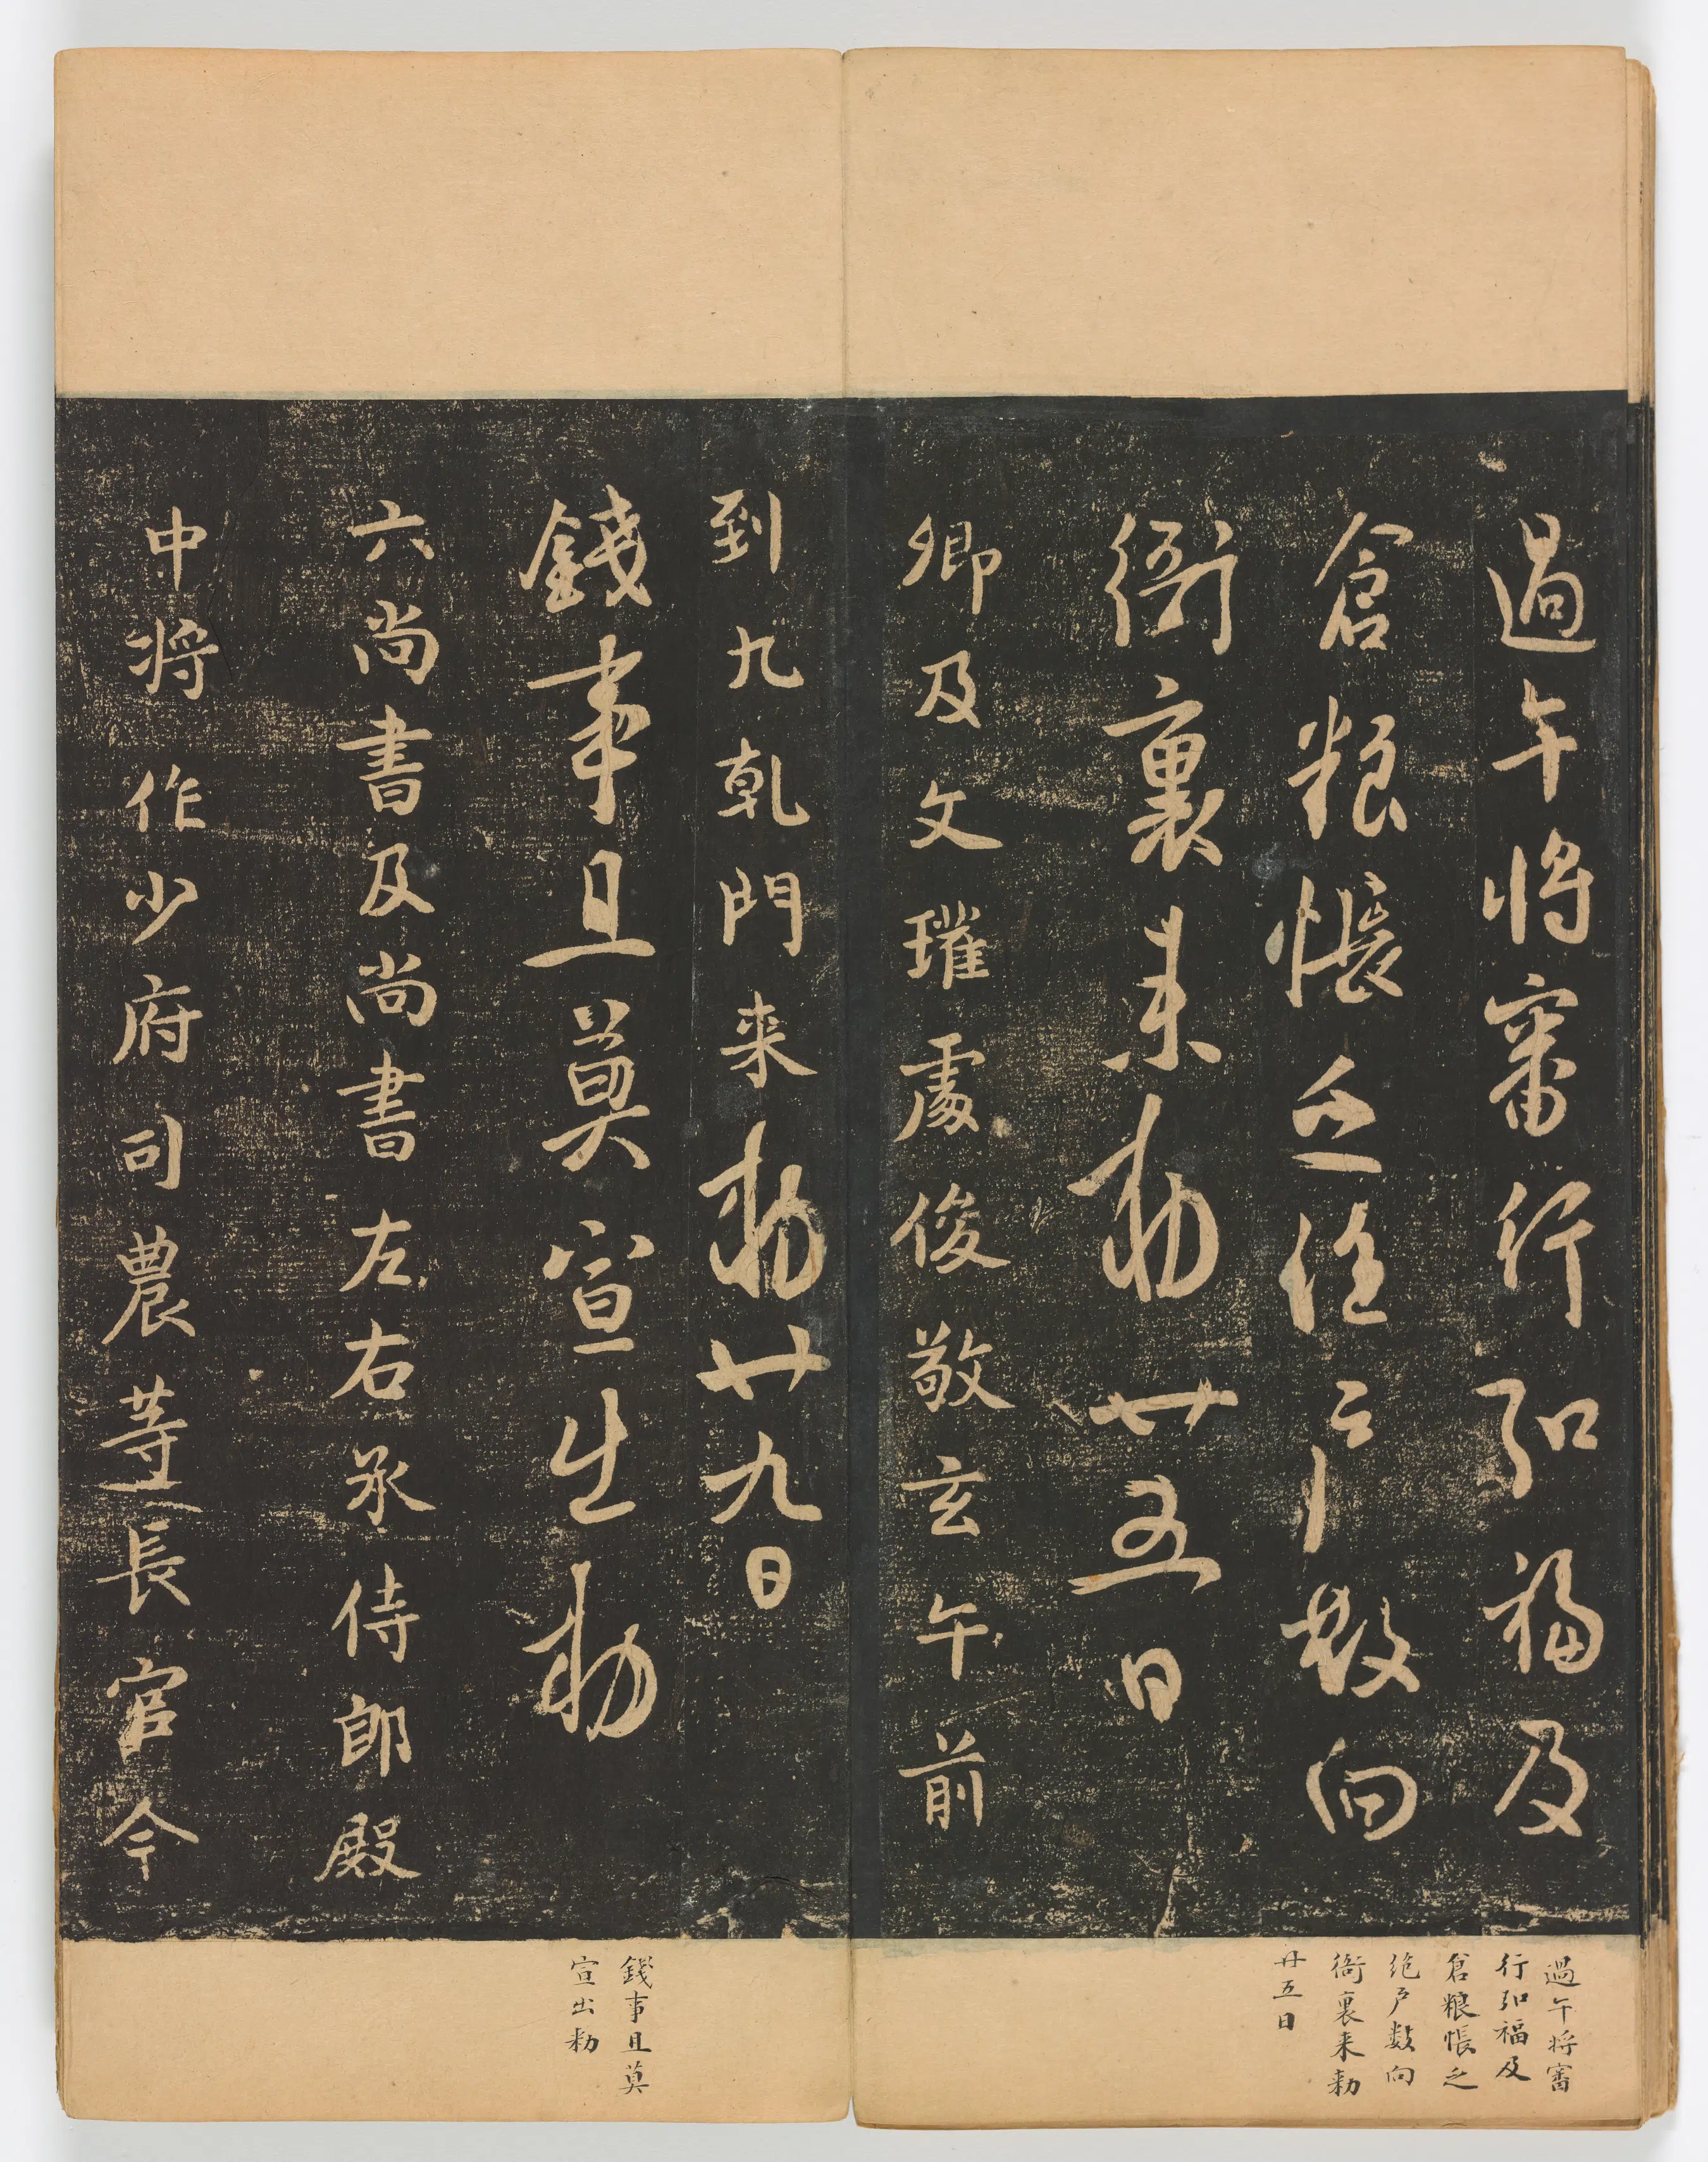 過午將審行弘福及
倉粮帳之絶戶數向
衙裏来勅廿五日
卿及文瓘處俊敬玄午前
到九乹門来勅廿九日
錢事且莫宣出勅
六尚書及尚書左右丞侍郎殿
中将作少府司農等長官今
過午将審
行弘福及
倉粮帳之
绝戶数向
衙裏来勅
廿五日
錢事且莫
宣出勅